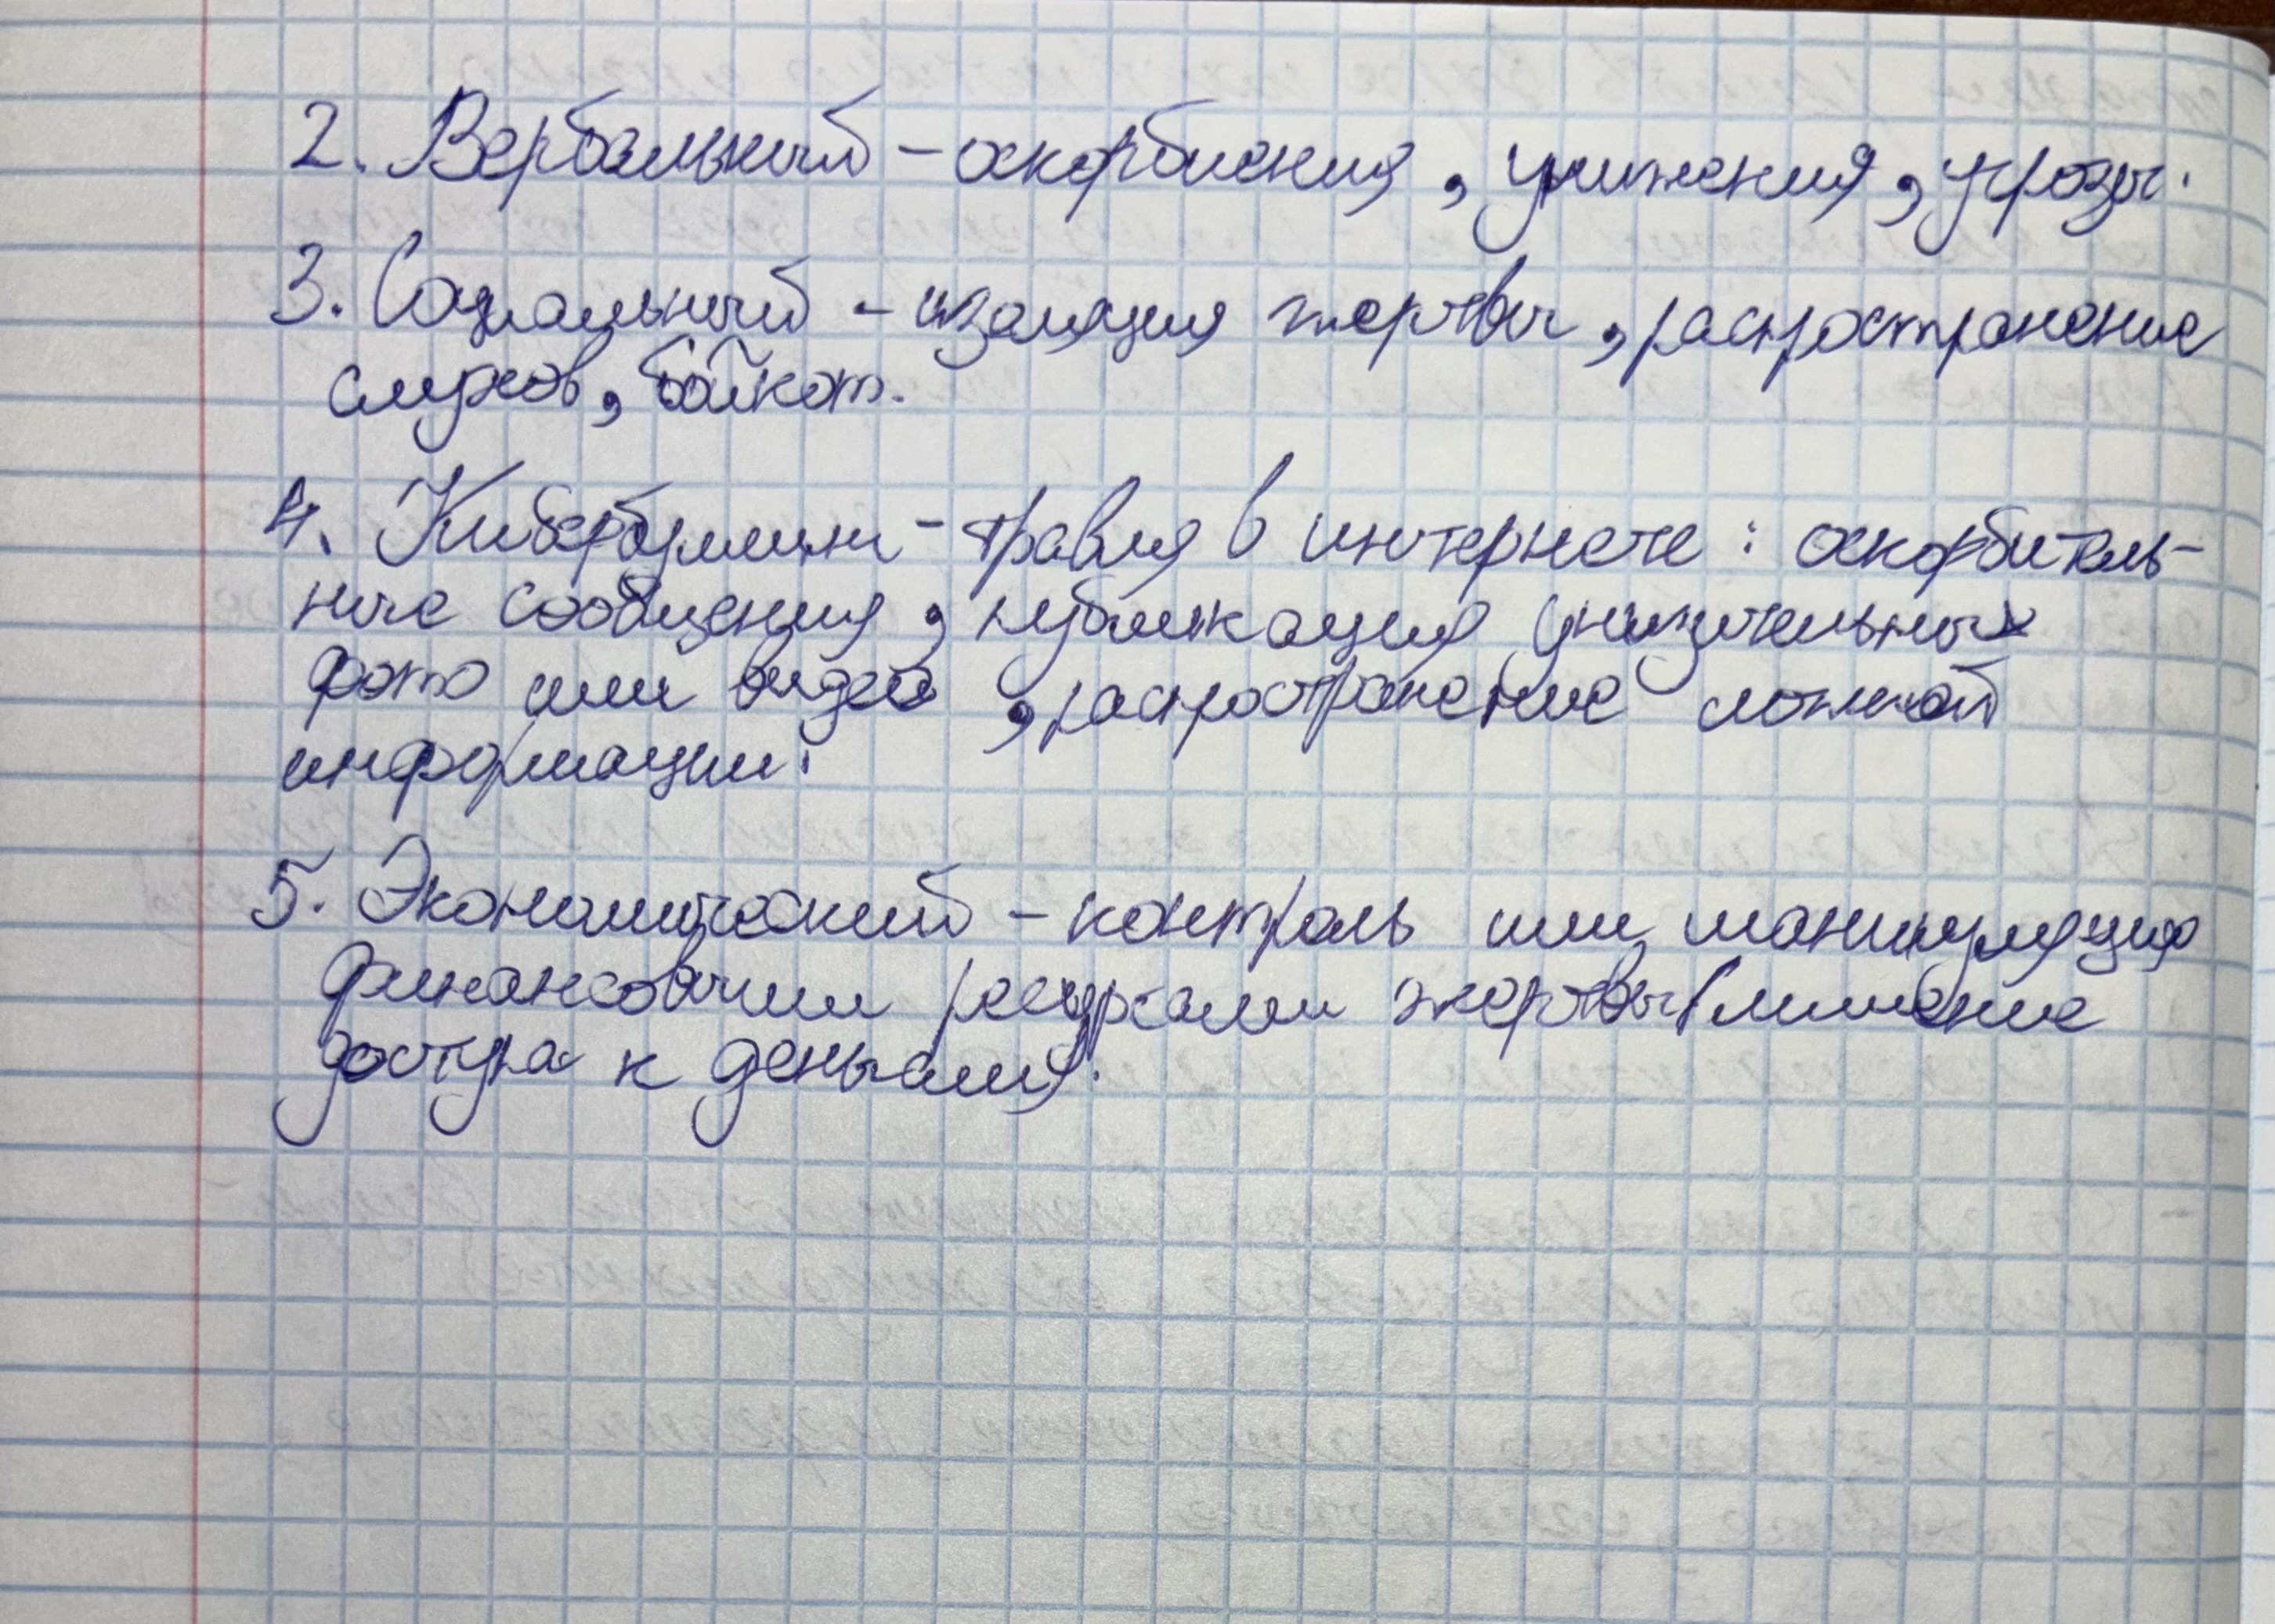 2. Вербальный – оскорбления, унижения, угрозы.
3. Социальный – изоляция жертвы, распространение
слухов, бойкот.
4. Кибербуллинг – травля в интернете: оскорбитель-
ные сообщения, публикация унизительных
фото или видео, распространение ложной
информации.
5. Экономический – контроль или манипуляция
финансовыми ресурсами жертвы (лишение
доступа к деньгам).